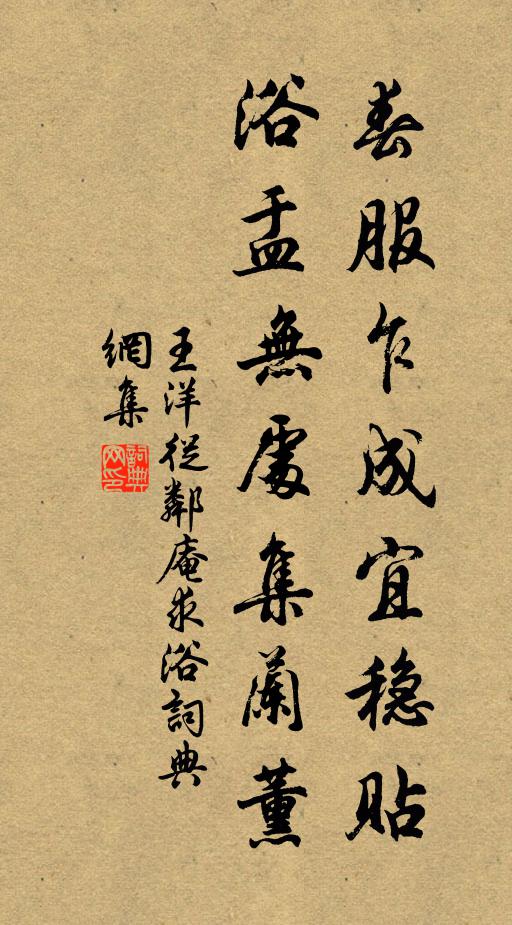 春服乍成宜稳貼
浴盂無處集蘭薰
王洋從鄰庵求浴詞典
網集
詞典網印